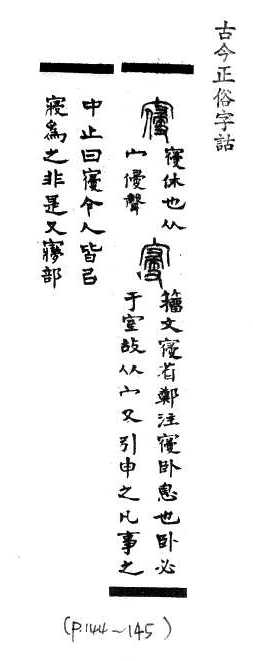 古今正俗字詁
寑休也从
宀㑴聲
籒文寑省鄭注寑卧息也卧必
于室故从宀又引申之凡事之
中止曰寑今人皆㠯
寢為之非是又㝱部
(P.144~145)